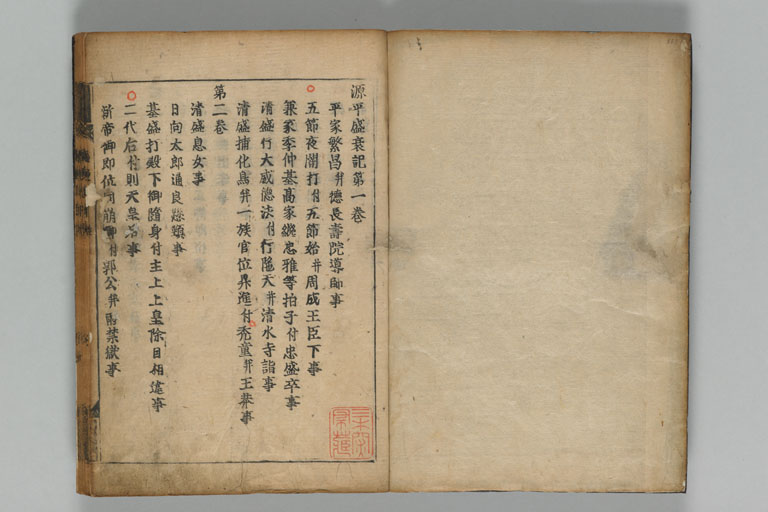 源平盛衰記第一巻
平家繁昌并徳長壽院導師事
五節夜闇打付五節始并周成王臣下事
兼家季仲基髙家継忠雅等拍子付忠盛卒事
清盛行大威徳法付行陀天并清水寺詣事
清盛捕化鳥并一族官位昇進付禿童并王莽事
第二巻
清盛息女事
日向太郎通良懸頸事
基盛打殿下御随身付主上上皇除目相違事
二代后付則天皇后事
新帝御即位同崩御付郭公并雨禁獄事